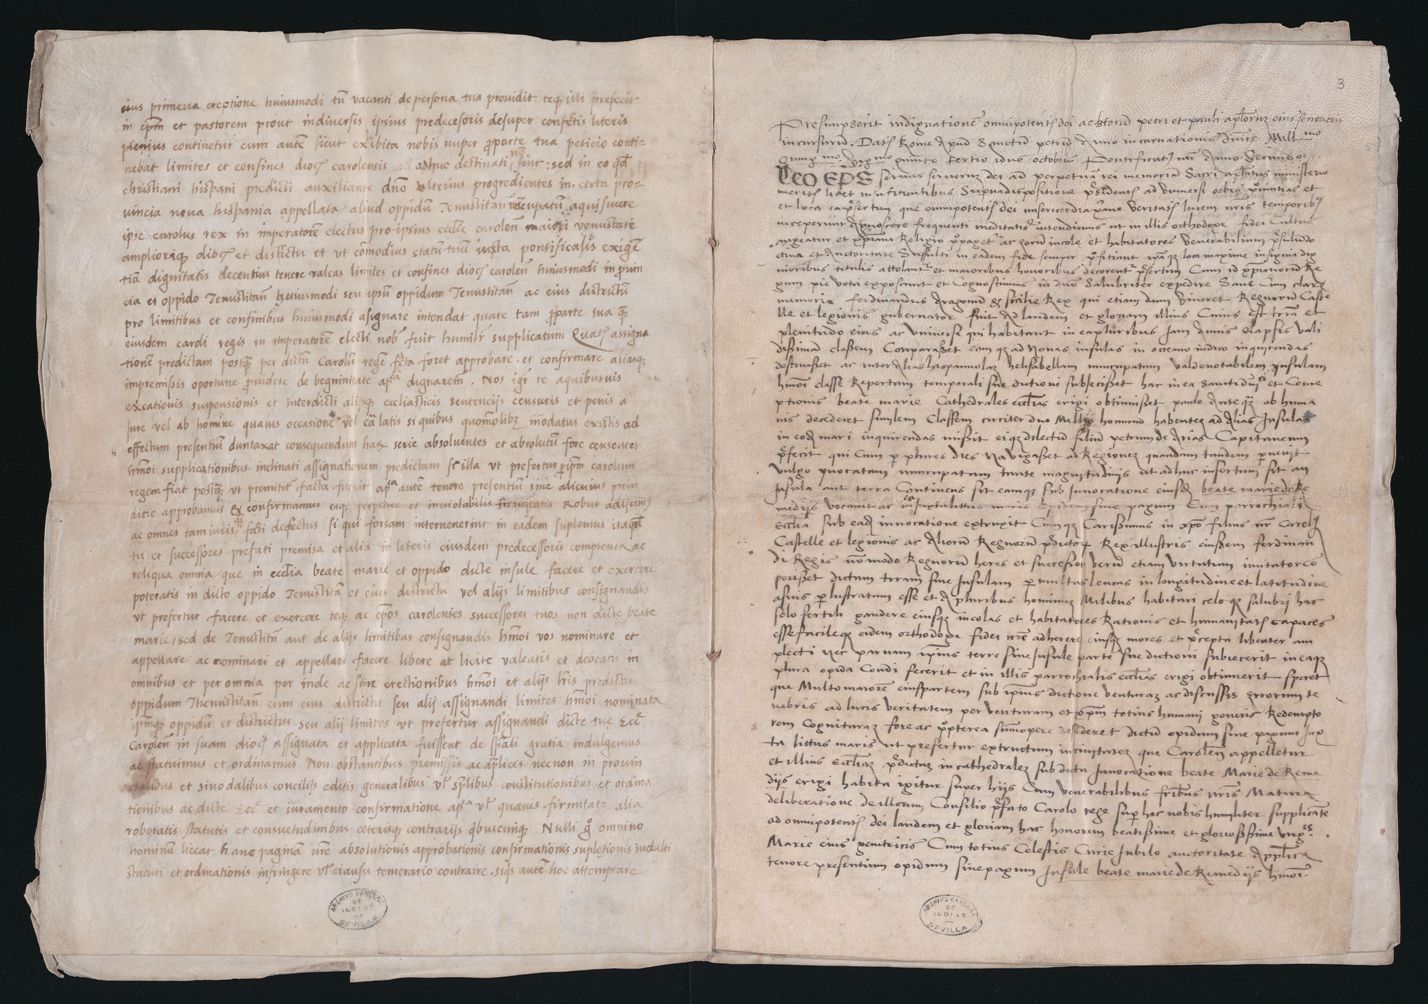 eius primeva erectione huiusmodi tũ vacanti de persona tua providit teq; illi prefecit
in ep̃m et pastorem prout in diversis ipsius predecesoris desuper confectis literis
plenius continetur cum autẽ sicut exibita nobis nuper p̱parte tua peticio conti-
nebat limites et confines dioc̃ carolensis astque destinati nõ sint: sed in eo qđ
christiani hispani predicti auxiliante dnõ ulterius progredientes in certa pro-
vincia nova hispania appellata / aliud oppidũ Tenustitan nũcupatũ aquisivere
ipse carolus rex in imperatorẽ electus pro ipsius eccliẽ carolen̄ maiori venustate
ampliorẽq; dioc̃ et districtu et ut comodius statũ tuũ iuxta pontificalis exigẽ
tiã dignitatis decentius tenere valeas limites et confines dioc̃ carolen̄ huiusmodi in provin
cia et oppido Tenustitan̄ huiusmodi seu ipsũ oppidum Tenustitan̄ ac eius districtũ
pro limitibus et confinibus huiusmodi asignare intendat quare tam p̱parte tua q̃
eiusdem caroli regis in imperatorẽ electi nob̃ fuit humilr̃ supplicatum Quat̃ assigna
tionẽ predictam postq̃ per dictũ Carolũ regẽ fc̃ta foret approbare et confirmare aliasq;
in premissis oportune p̱videre de begninitate ap̃ca dignaremr̃. Nos igr̃ te a quibusvis
excationis suspensionis et interdicti alijsq; eccliasticis sentencijs censuris et penis a
iure vel ab homine quavis occasione vel cã latis si quibus quomõlibz inodatus existis ad
effectum presentiũ dumtaxat consequendum haru serie absolventes et absolutũ fore censentes
hmõi supplicationibus inclinati assignationem predictam si illa ut prefertur p̱ ipm̃ carolum
regem fiat postq̃ ut premititr̃ facta fuerit ap̃ca autẽ tenore presentiũ sine alicuius preiu
dicio approbamus & confirmamus eiq; perpetue et inviolabilis firmitatis robur adijcim9
ac omnes tam iuris q̃ facti defectus si qui forsam intervenerint in eadem suplemus itaq̃
tu et successores prefati premisa et alia in literis eiusdem predecessoris comptensa ac
reliqua omnia que in ecclia beate marie et oppido dicte insule facere et exercere
poteratis in dicto oppido Tenustitã et eius districtu vel alijs limitibus consignandis
ut prefertur facere et exercere teq; ac ep̃os carolenses successores tuos non dicte beate
marie, sed de Tenustitn̄ aut de alijs limitibus consignandis hmõi vos nominare et
appellare ac nominari et appellari facere libere at licite valeatis et debeatis in
omnibus et per omnia per inde ac si in erectionibus hmõi et alijs lr̃is predictis
oppidum Thenustitan̄ cum eius districtu seu alij assignandi limites hmõi nominata
ipm̃q; oppidũ et districtus seu alij limites ut prefertur assignandi dicte tue Ecc̃
carolen̄ in suam dioc̃ assignata et applicata fuissent de sp̃ali gratia indulgemus
ac statuimus et ordinamus. Non obstantibus premissis ac ap̃licis necnon in provin
cialibus et sinodalibus concilijs editis generalibus vl̃ sp̃libus constitutionibus et ordina
tionibus ac dicte Ecc̃ et iuramento confirmatione ap̃ca vl̃ quavis firmitate alia
roboratis statutis et consuetudinibus ceterisq; contrarijs q̃buscunq; Nulli g̃ omnino
hominũ liceat hanc paginam nr̃e absolutionis approbationis confirmationis supletionis indulti
statuti et ordinationis infringere vl̃ ei ausu temerario contraire. siqs autẽ hoc attemptare
ARCHIVO GENERAL DE INDIAS SEVILLA
3
Presumpserit indignationẽ omnipotentis dei ac b̃torũ petri et pauli ap̃lorũ eius se noverit
incursurũ. Datis Rome apud Sanctum petrũ Anno incarnationis dnĩce Mill.mo
quinto tertio idus octobris Pontificat9 nr̃i Anno Secundo
LEO EPS servus servorũ dei ad perpetuam rei memoriã Sacri ap̃latus ministerio
meritis licet insufficientibus Supna dispositione p̃sidentes ad universi orbis p̃vintias et
et loca cap̃sertim que omnipotentis dei misericordia p̃vame veritatis lucem nr̃is temporib9
inceperunt agnoscere frequenti meditatione intendimus ut in illis orthodoxe fidei cultus
augeatur et xp̃iana Religio p̃pagetr̃ ac eorũ incole et habitatores venerabilium p̃sulũ do
ctrina et auctoritate suffulti in eadem fide semper p̃ficiant ipãq; loca maxime insignia dig
nioribus titulis attolantr̃ et maioribus honoribus decorentr̃ p̃sertim Cum id xp̃ianorũ Re
gum pie vota exposcunt et Cognoscimus in dnõ Salubriter expedire Sane Cum clarę
memorię ferdinandus Aragonũ & sicilie Rex qui etiam dum viveret Regnorũ Caste
lle et legionis gubernator fuit ad laudem et gloriam illius Cuius est terra et
plenitudo eius ac universi qui habitant in ea pluribus Jam Annis elapsis vali
dissimã classem Comparasset eamq; ad novas insulas in occeano indico inquirendas
destinasset ac inter alias hispaniolaz helisabellam nuncupatam valde notabilem insulam
hmõi classe Repertam temporali sue dictioni subiecisset hac in ea sanctũ et Conce
ptionis beate marie Cathedrales ecclias erigi obtinuisset paulo Anteq; ab huma
nis decederet similem Classem circiter duo Millia hominũ habentem ad Alias Insulas
in eodẽ mari inquirendas misit eiq; dilectũ filiũ petrum de Arias Capitaneum
p̃fecit qui Cum p̱ plures dies Navigasset ad Regionẽ quandam tandem p̃venit
vulgo yucatam nuncupatam tante magnitudinis ut adhuc incertum sit an
Insula aut terra Continens sit eamq; sub Invocatione eiusđ beate marie de Re
medijs vocavit ac in ipsius litus maris opidum sive pagum Cum parrochiali
Ecclia sub eadẽ invocatione extruxit Cumq; Carissimus in xp̃o filius nr̃ Carol9
Castelle et legionis ac Aliorũ Regnorũ p̃dictor̃ Rex illustris eiusdem ferdinan
di Regis nõ modo Regnorũ heres et successor verũ etiam virtutum imitator co
perisset dictum terram sive Insulam p̱ multas leucas in longitudine et latitudine
a suis p̱lustratam esse et a pluribus hominuz Milibus habitari celo q; salubri hac
solo fertili gaudere eiusq; incolas et habitatores Rationis et humanitatis capaces
esse facileq; eidem orthodoxe fidei nr̃e adherere eiusq; mores et p̃cepta libenter am
plecti nec parvam ipsius terre sive Insule partẽ sue dictioni subiecerit in eaq;
plura opida Condi fecerit et in illis parrochialis ecclias erigi obtinuerit speret
que Multo maiorẽ eius partem sub ipsius dictione venturaz ac discussis errorum te
nebris ad lucis veritatem perventuram et xp̃m totius humani generis Redempto
rem Cognituraz fore ac p̃pterea summopere desideret dictũ opidum sive pagum Jux
ta littus maris ut prefertur extructum in civitatez que Carolen̄ appelletur
et illius Eccliaz p̃dictaz in cathedralez sub dicta Invocatione beate Marie de Reme
dijs erigi habita igitur super hijs Cum venerabilibus fr̃ibus nr̃is Matura
deliberatione de illorum Consilio p̃fato Carolo rege sup̱ hoc nobis humiliter supplicante
ad omnipotentis dei laudem et gloriam hac honorem beatissime et gloriosissime virgis
Marie eius genitricis Cum totius Celestis Curie Jubilo auctoritate App̃lica
tenore presentium opidum sive pagum Insule beate marie de Remedijs hmõi
ARCHIVO GENERAL DE INDIAS SEVILLA